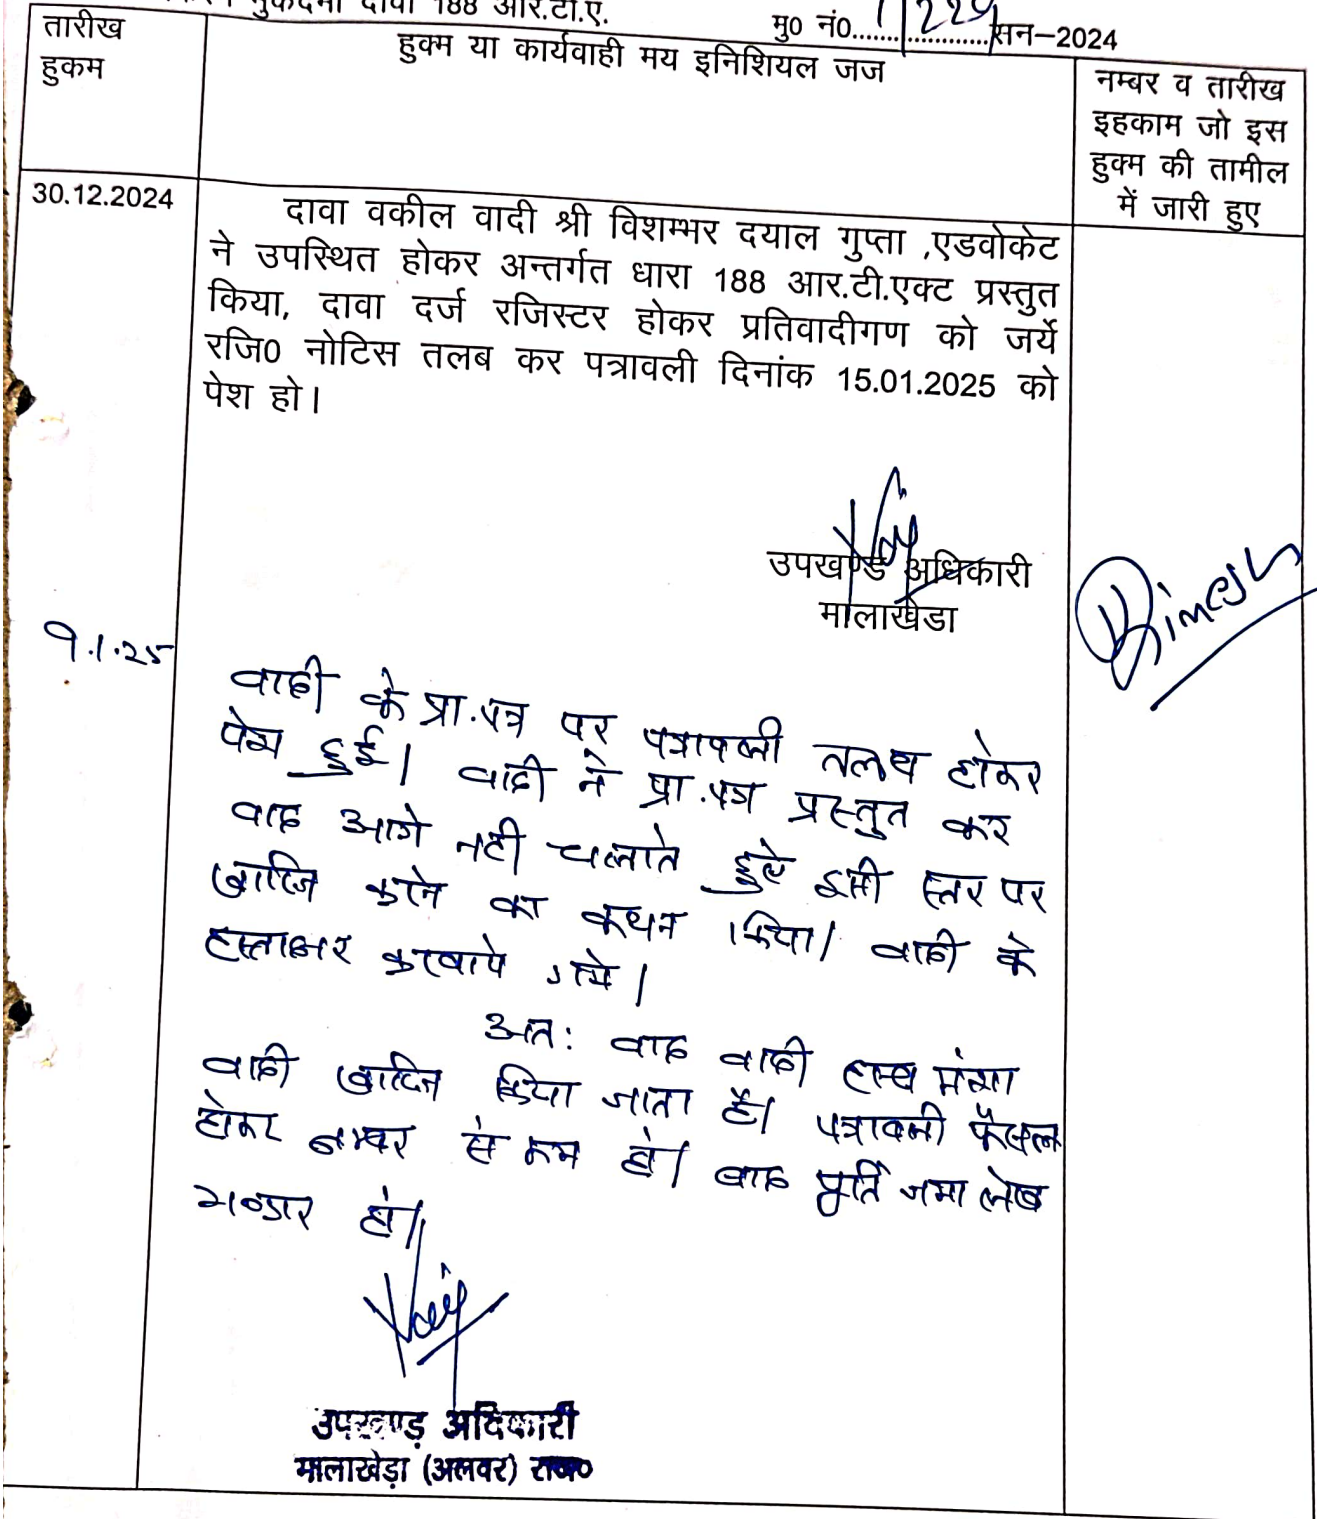 मुकदमा दावा 188 आर.टी.ए.
मु0 नं0....... सन–2024
तारीख
हुकम
हुक्म या कार्यवाही मय इनिशियल जज
नम्बर व तारीख
इहकाम जो इस
हुक्म की तामील
में जारी हुए
30.12.2024
दावा वकील वादी श्री विशम्भर दयाल गुप्ता ,एडवोकेट
ने उपस्थित होकर अन्तर्गत धारा 188 आर.टी.एक्ट प्रस्तुत
किया, दावा दर्ज रजिस्टर होकर प्रतिवादीगण को जर्ये
रजि0 नोटिस तलब कर पत्रावली दिनांक 15.01.2025 को
पेश हो।
उपखण्ड अधिकारी
मालाखेडा
9.1.25
वादी के प्रा.पत्र पर पत्रावली तलब होकर
पेश हुई। वादी ने प्रा.पत्र प्रस्तुत कर
वाद आगे नही चलाते हुए इसी स्तर पर
खारिज करने का कथन किया। वादी के
हस्ताक्षर करवाये गये।
अत: वाद वादी हस्ब मंशा
वादी खारिज किया जाता है। पत्रावली फैसल
होकर नम्बर से कम हो। बाद पूर्ति जमा लेख
भण्डार हो।
Dimesh
उपखण्ड़ अधिकारी
मालाखेड़ा (अलवर) राज०